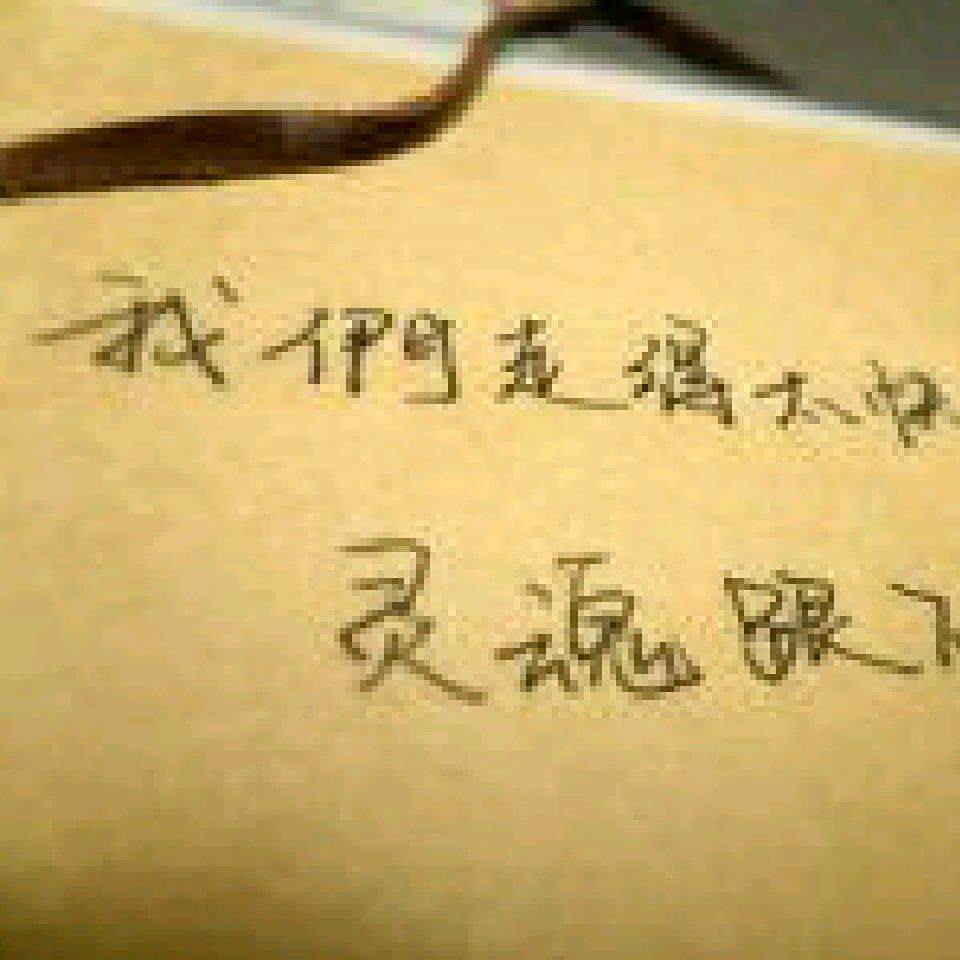 我們走得太快
灵魂跟不